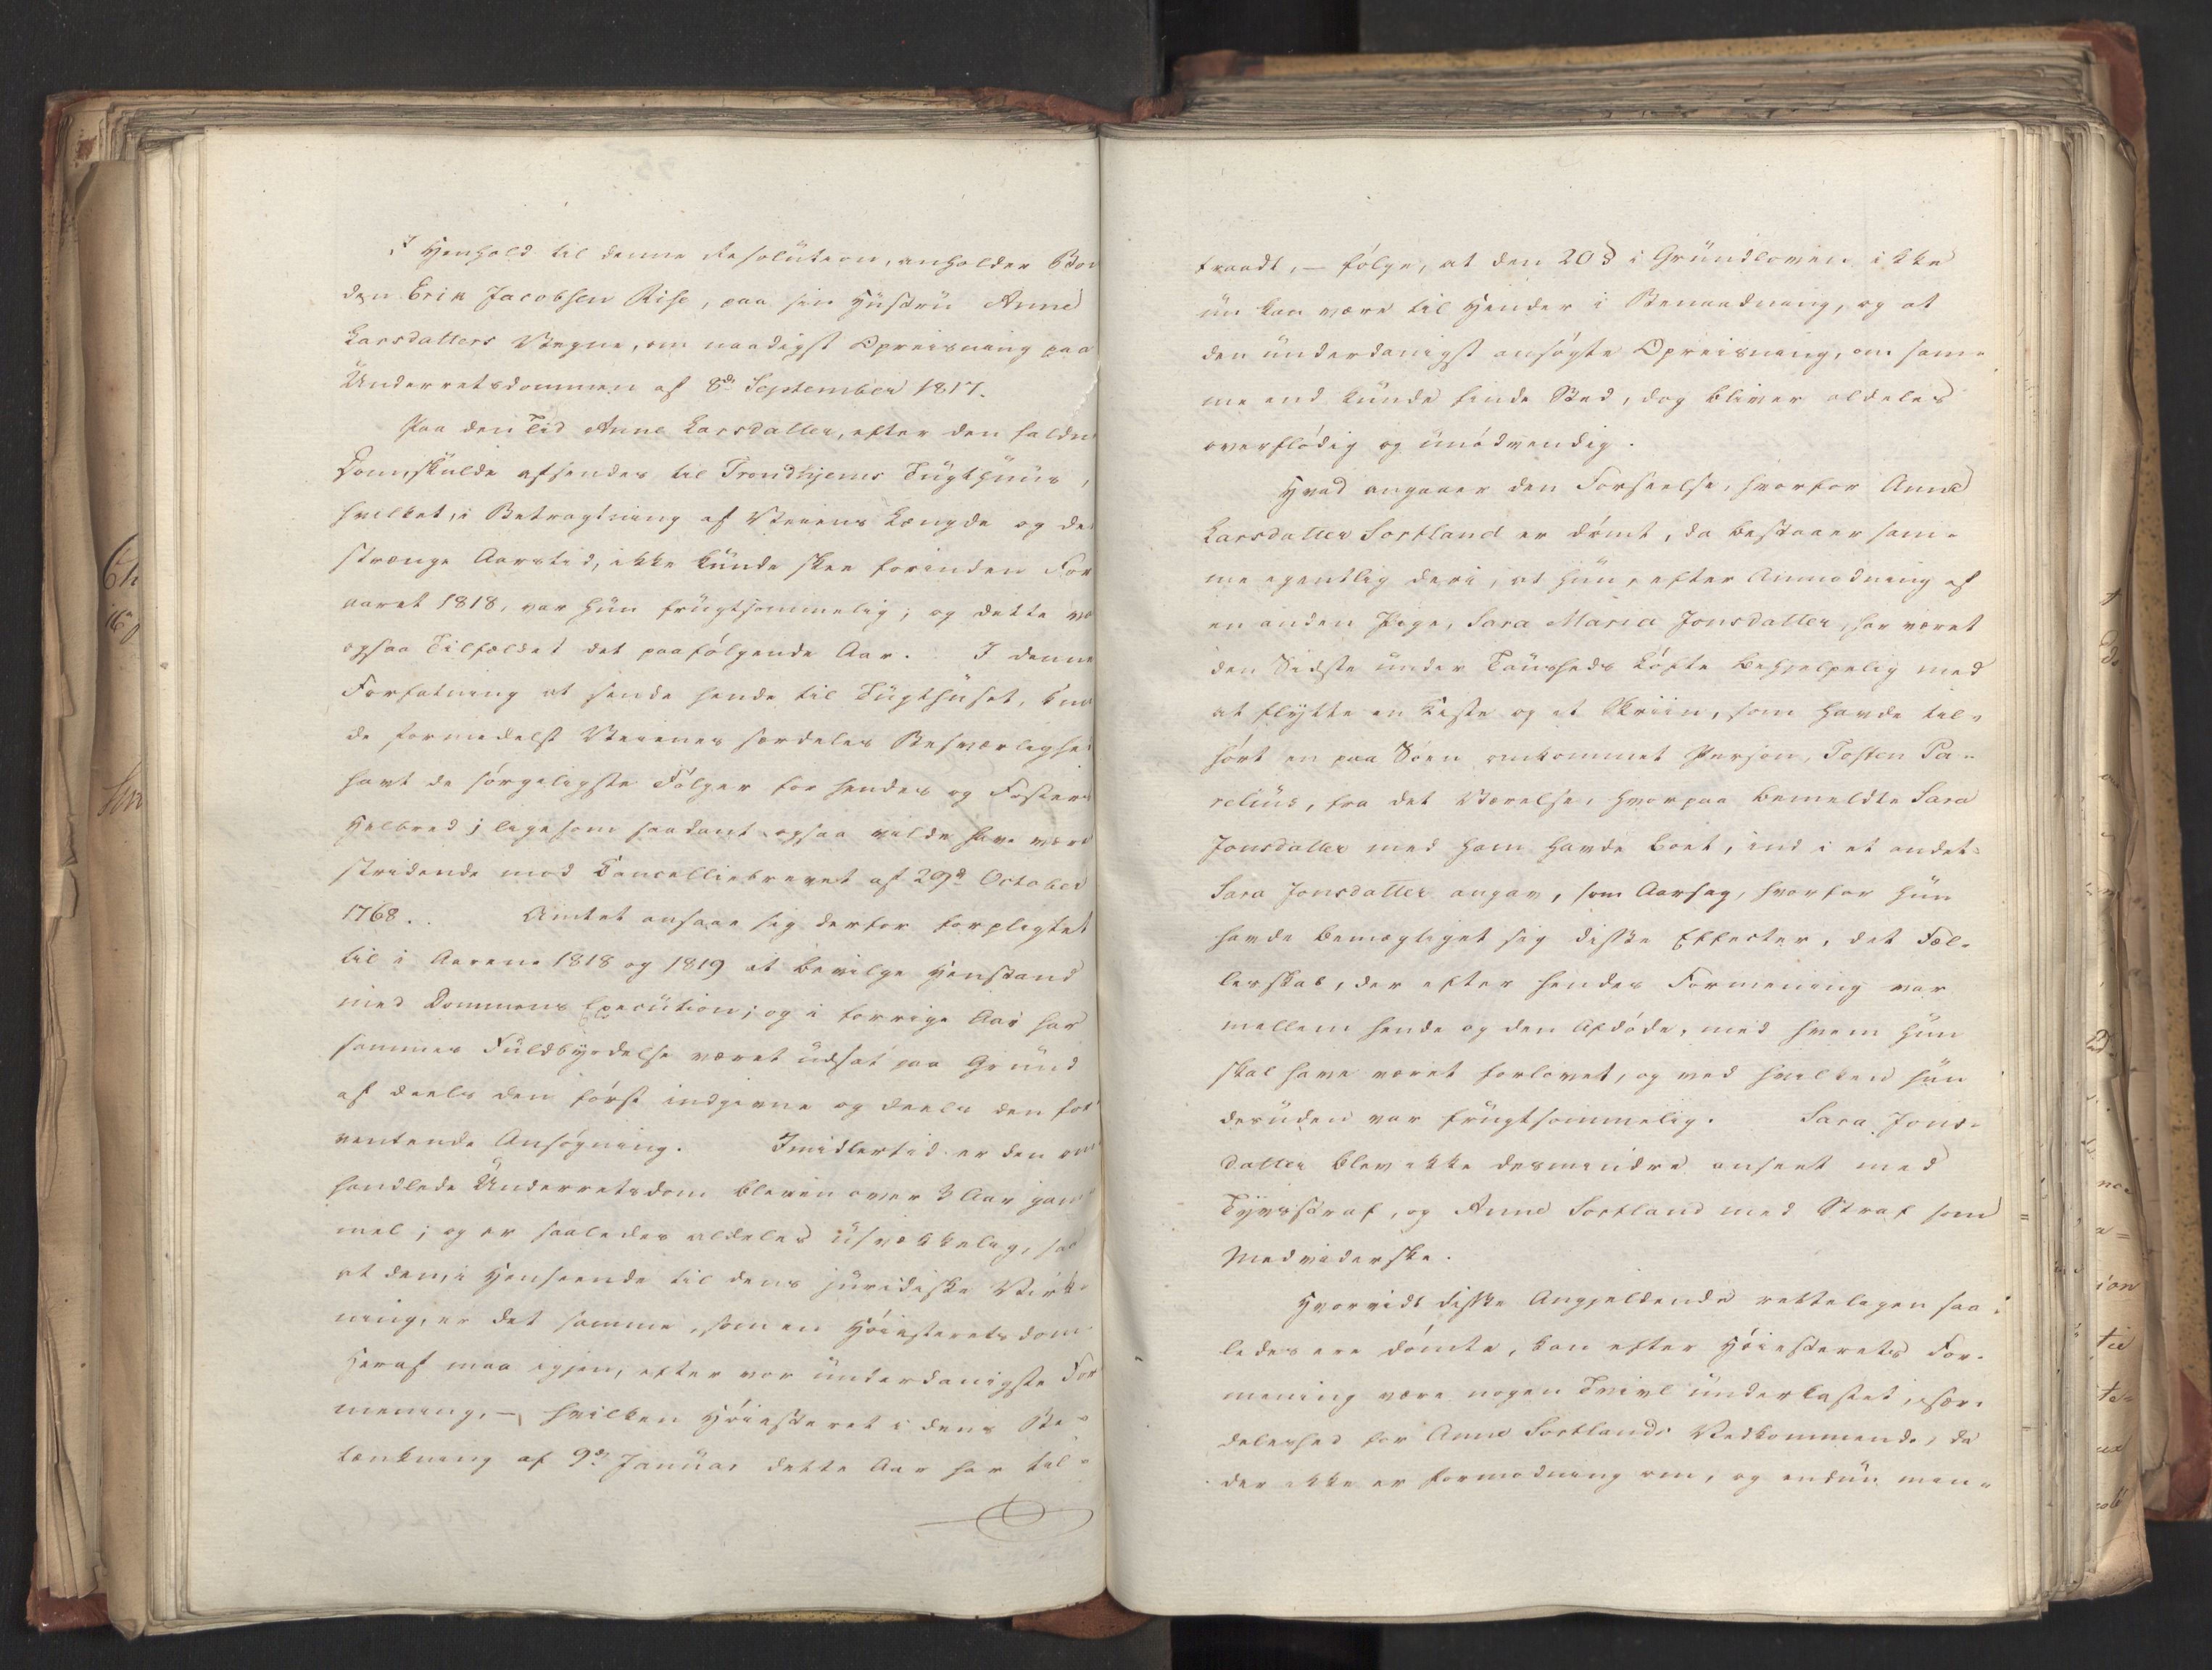 I Henhold til denne Resolution, anholder Bon
den Erik Jacobsen Rise, paa sin Hustru Anne
Larsdatters Vegne, om naadigst Opreisning paa
Underretsdommen af 8de September 1817.
Paa den Tid Anne Larsdatter, efter den faldne
Dom, skulde afsendes til Trondhjems Tugthuus,
hvilket, i Betragtning af Veiens Længde og den
strænge Aarstid, ikke kunde skee forinden For
aaret 1818, var hun frugtsommelig; og dette var
ogsaa Tilfældet det paafølgende Aar. I denne
Forfatning at sende hende til Tugthuset, kun
de formedelst Veienes særdeles Besværlighed
havt de sørgeligste Følger for hendes og Fosterets
Helbred; ligesom saadant ogsaa vilde have været
stridende mod Cancelliebrevet af 29de October
1768. Amtet ansaae sig derfor forpligtet
til i Aarene 1818 og 1819 at bevilge Henstand
med Dommens Execution; og i forrige Aar har
sammes Fuldbyrdelse været udsat paa Grund
af deels den først indgivne og deels den for
ventende Ansøgning. Imidlertid er den om
handlede Underretsdom bleven over 3 Aar gam
mel; og er saaledes aldeles usvækkelig, saa
at den, i Henseende til dens juridiske Virk-
ning, er det samme, som en Høiesteretsdom.
Heraf maa igjen, efter vor underdanigste For
mening, – hvilken Høiesteret i dens Be-
tænkning af 9de Januar dette Aar har til-
traadt, – følge, at den 20 § i Grundloven ikke
nu kan være til Hinder i Benaadning, og at
den underdanigst ansøgte Opreisning, om sam-
me end kunde finde Sted, dog bliver aldeles
overflødig og unødvendig.
Hvad angaaer den Forseelse, hvorfor Anne
Larsdatter Sortland er dømt, da bestaaer sam-
me egentlig deri, at hun, efter Anmodning af
en anden Pige, Sara Maria Jonsdatter, har været
den Sidste under Taushheds Løfte behjelpelig med
at flytte en Kiste og et Skriin, som havde til-
hørt en paa Søen omkommet Person, Tosten Pa-
relius, fra det Værelse, hvorpaa bemeldte Sara
Jonsdatter med ham havde boet, ind i et andet.
Sara Jonsdatter angav, som Aarsag, hvorfor hun
havde bemægtiget sig disse Effecter, det Fæl-
lesskab, der efter hendes Formening var
mellem hende og den Afdøde, med hvem hun
skal have været forlovet, og ved hvilken hun
desuden var frugtsommelig. Sara Jons-
datter blev ikke desmindre anseet med
Tyvsstraf, og Anne Sortland med Straf som
Medviderske.
Hvorvidt disse Angjeldende rettelagen saa-
ledes ere dømte, kan efter Høiesterets For-
mening være nogen Tvivl underkastet, sær-
deleshed for Anne Sortlands Vedkommende, da
der ikke er Formodning om, og endnu min-